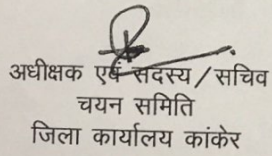 अधीक्षक एवं सदस्य/सचिव
चयन समिति
जिला कार्यालय कांकेर